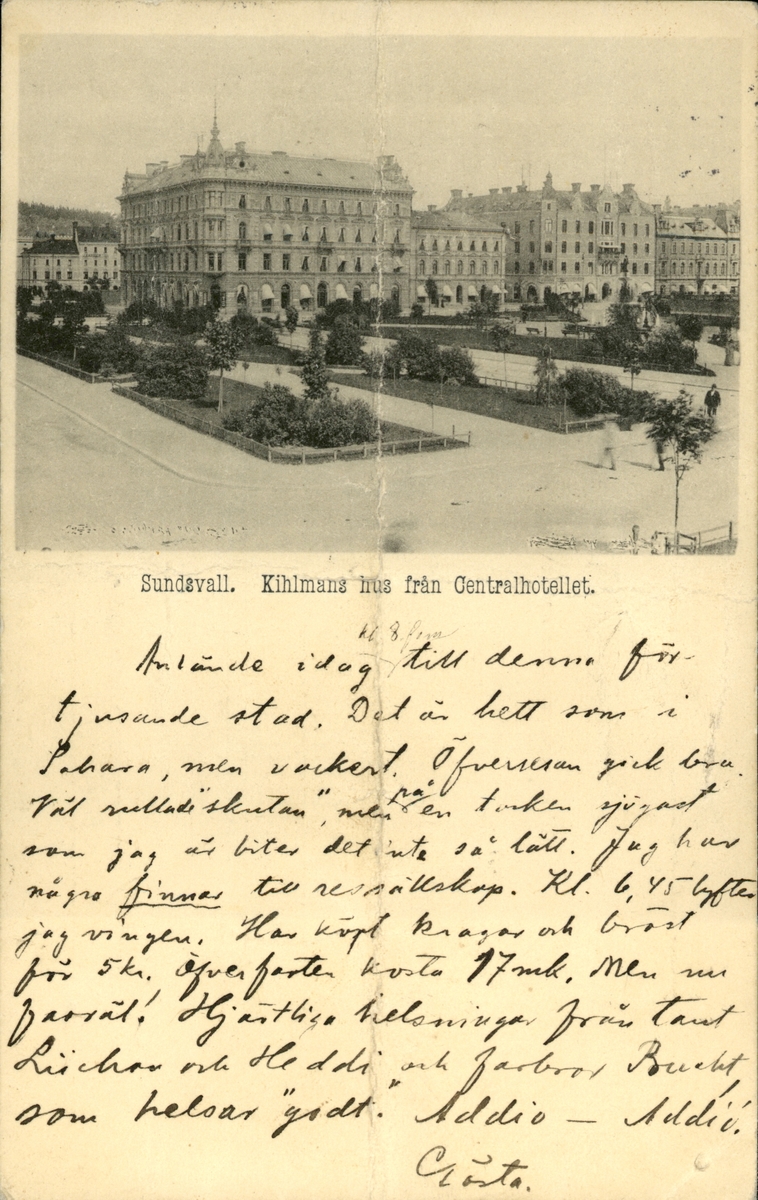 Sundsvall. Kihlmans hus från Centralhotellet.
kl 8 f.m
Anlände idag till denna för-
tjusande stad. Det är hett som i
Sahara, men vackert. Öfverresan gick bra.
Väl rullade "skutan", men på en tocken sjögast
som jag är biter det inte så lätt. Jag har
några finnar till ressällskap. Kl. 6,45 lyfter
jag vingen. Har köpt kragar och bröst
för 5 kr. Öfverfarten kosta 17 mk. Men nu
farväl! Hjärtliga helsningar från tant
och Heddi och farbror
som helsar "godt." Addio — Addio!
Gösta.